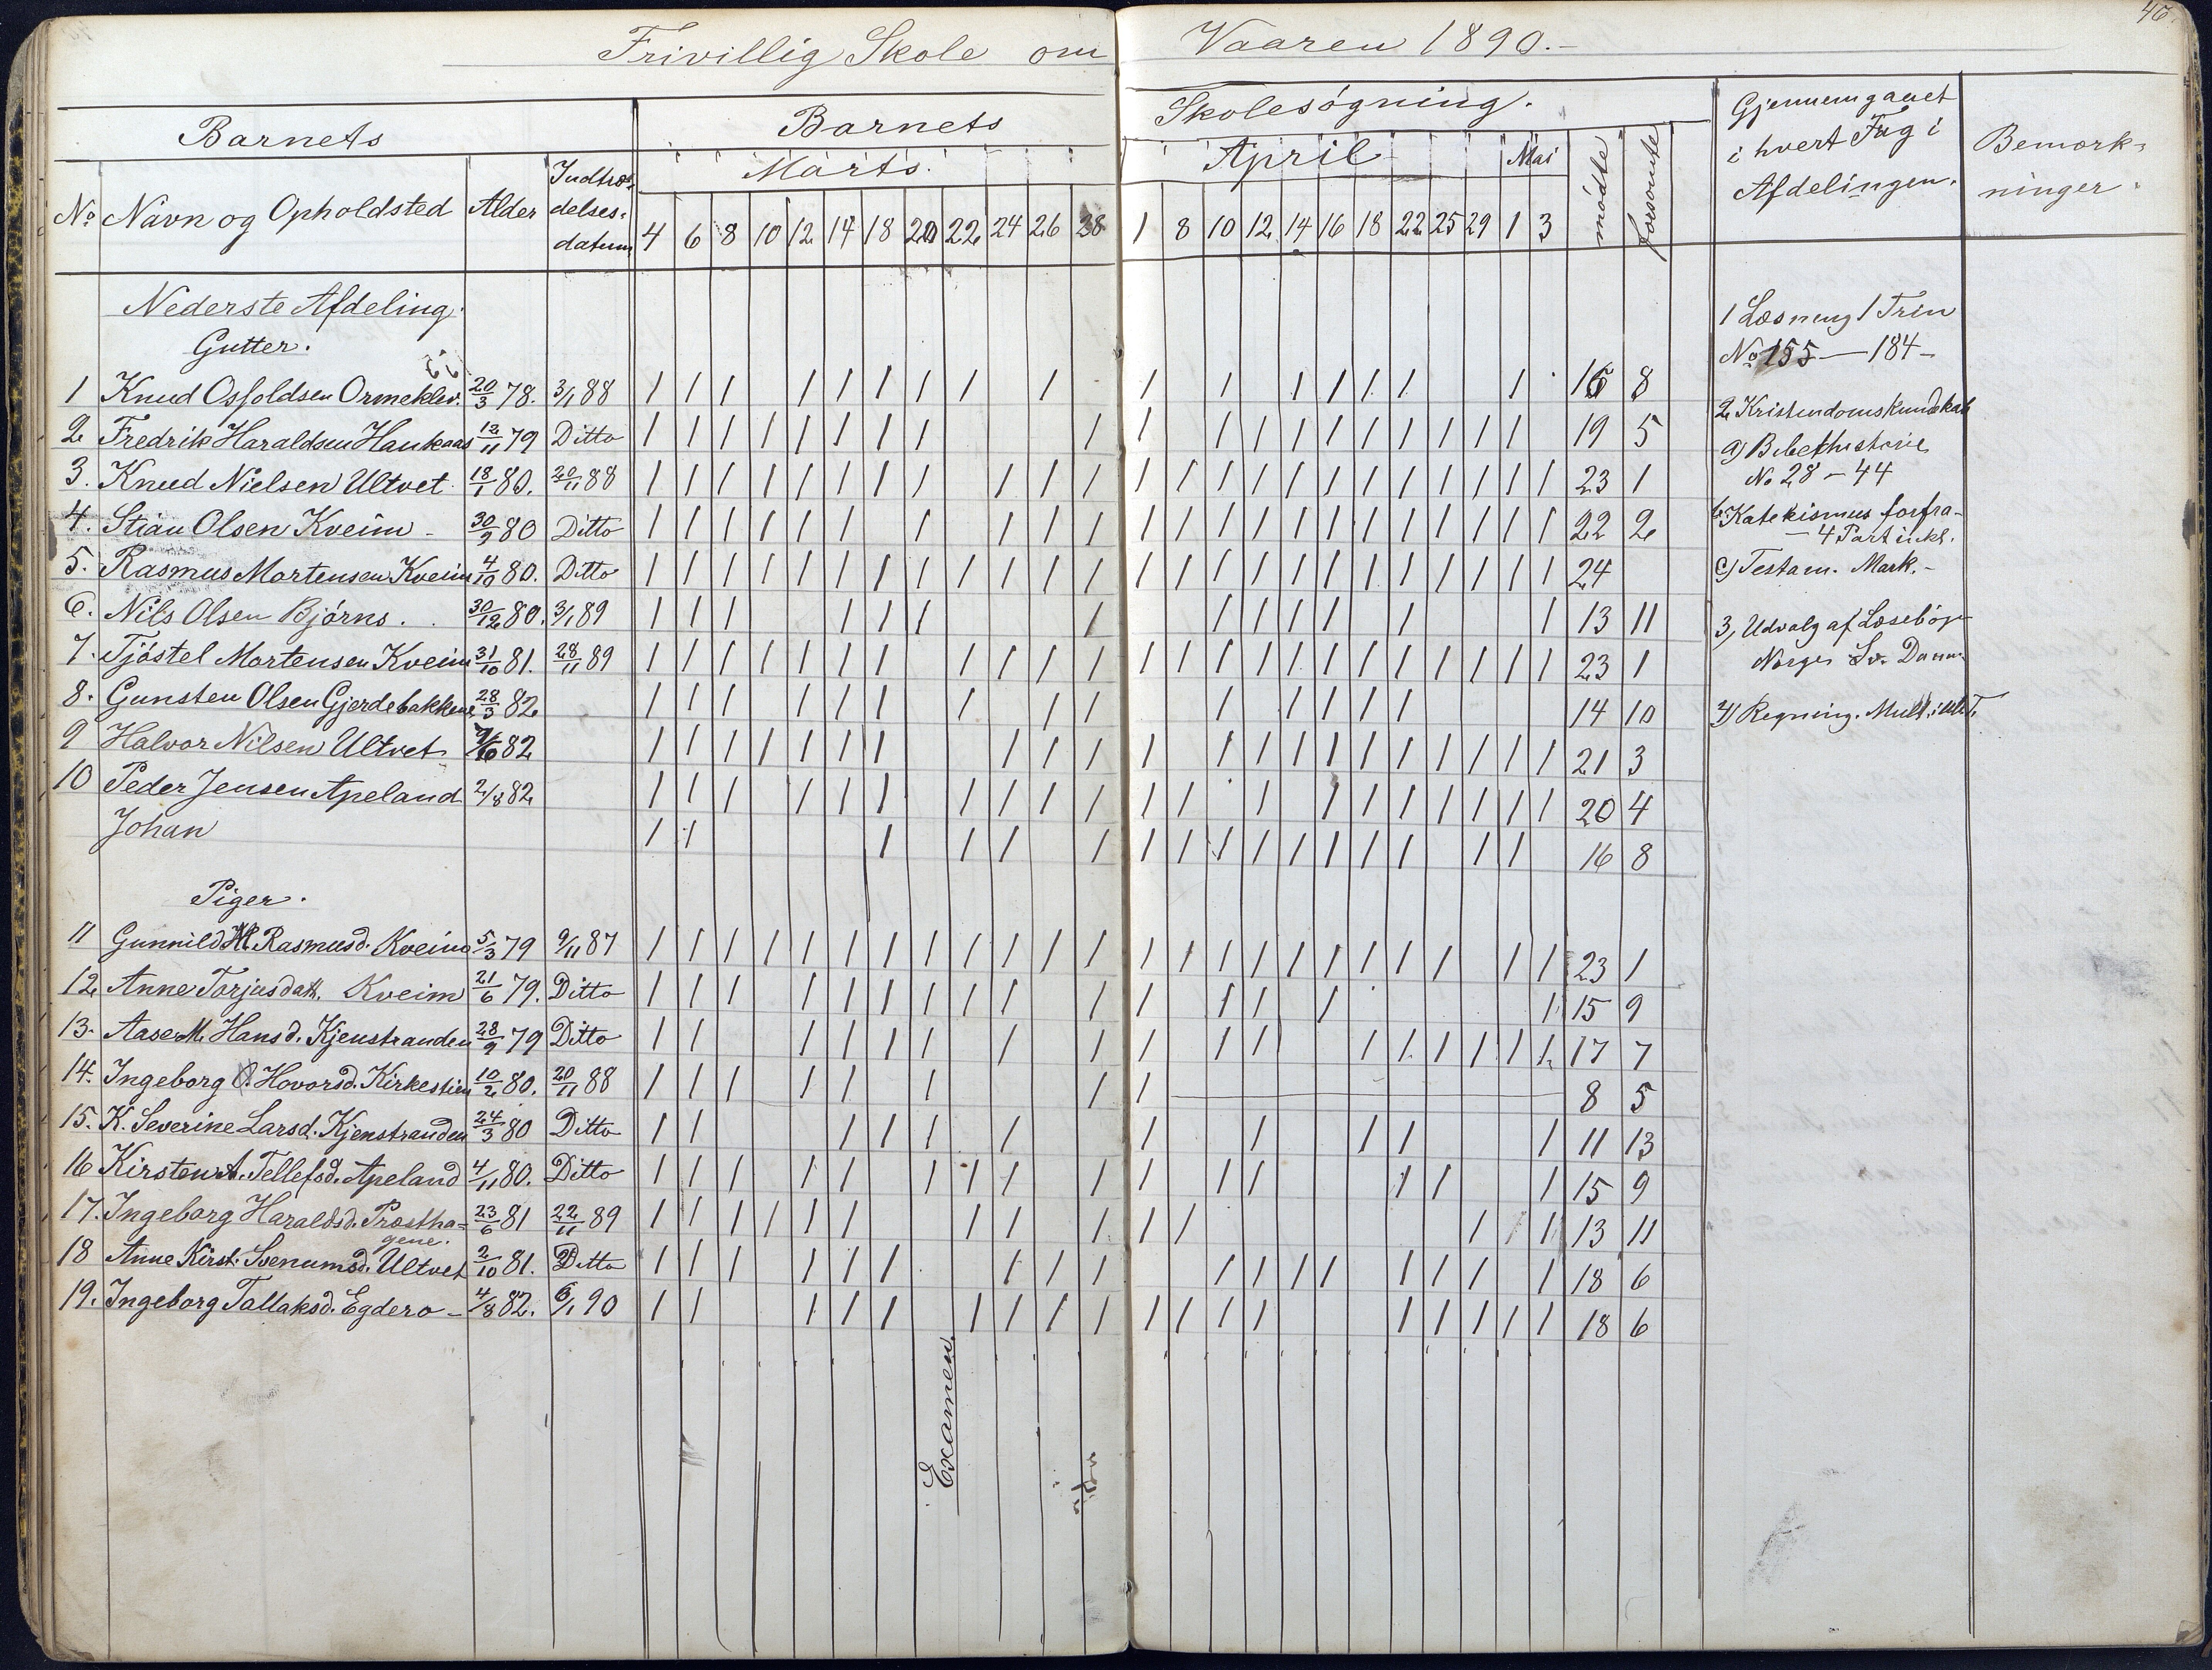 46.
Frivillig Skole om Vaaren 1890.-
Barnets
Barnets Skolesøgning.
Gjennemgaaet i hvert Fag i Afdelingen.
Bemærk-
ninger.
No Navn og Opholdsted Alder Indtræ-
delses-
datum
Marts. April Mai mødte forsømte
4 6 8 10 12 14 18 20 22 24 26 28 1 8 10 12 14 16 18 22 25 29 1 3
Nederste Afdeling.
Gutter.
1 Knud Osfoldsen Ormeklev. 20/3 78. 3/1 88 1 1 1 1 1 1 1 1 1 1 1 1 1 1 1 1 1 16 8
2 Fredrik Haraldsen Haukaas 12/11 79 Ditto 1 1 1 1 1 1 1 1 1 1 1 1 1 1 1 1 1 1 1 19 5
3. Knud Nielsen Ultvet 18/1 80. 20/11 88 1 1 1 1 1 1 1 1 1 1 1 1 1 1 1 1 1 1 1 1 1 1 1 23 1
4. Stian Olsen Kveim - 30/9 80 Ditto 1 1 1 1 1 1 1 1 1 1 1 1 1 1 1 1 1 1 1 1 1 1 22 2
5. Rasmus Mortensen Kveim 4/10 80. Ditto 1 1 1 1 1 1 1 1 1 1 1 1 1 1 1 1 1 1 1 1 1 1 1 1 24
6. Nils Olsen Bjørns. . 30/12 80. 3/1 89 1 1 1 1 1 1 1 1 1 1 1 1 1 13 11
7. Tjøstel Mortensen Kveim 31/10 81. 28/11 89 1 1 1 1 1 1 1 1 1 1 1 1 1 1 1 1 1 1 1 1 1 1 1 23 1
8. Gunsten Olsen Gjerdebakkene 28/3 82 1 1 1 1 1 1 1 1 1 1 1 1 1 1 14 10
9 Halvor Nilsen Ultvet 82 1 1 1 1 1 1 1 1 1 1 1 1 1 1 1 1 1 1 1 1 1 21 3
10 Peder Jensen Apeland 2/8 82 1 1 1 1 1 1 1 1 1 1 1 1 1 1 1 1 1 1 1 1 20 4
Johan 1 1 1 1 1 1 1 1 1 1 1 1 1 1 1 1 16 8
Piger.
11 Gunnild M. Rasmusd. Kveim 5/3 79 9/11 87 1 1 1 1 1 1 1 1 1 1 1 1 1 1 1 1 1 1 1 1 1 1 1 23 1
12 Anne Torjusdatt. Kveim 21/6 79. Ditto 1 1 1 1 1 1 1 1 1 1 1 1 1 1 1 15 9
13. Aase M. Hansd. Kjenstranden 28/9 79 Ditto 1 1 1 1 1 1 1 1 1 1 1 1 1 1 1 1 1 17 7
14. Ingeborg O. Hovorsd. Kirkestien 10/2 80. 20/11 88 1 1 1 1 1 1 1 1 8 5
15. K. Severine Larsd. Kjenstranden 24/3 80 Ditto 1 1 1 1 1 1 1 1 1 1 11 13
16 Kirsten A. Tellefsd. Apeland 4/11 80. Ditto 1 1 1 1 1 1 1 1 1 1 1 1 1 1 1 15 9
17. Ingeborg Haraldsd. Prostha-
gene. 23/6 81 22/11 89 1 1 1 1 1 1 1 1 1 1 1 1 1 1 13 11
18 Anne Kirst. Svenumsd. Ultvet 2/10 81. Ditto 1 1 1 1 1 1 1 1 1 1 1 1 1 1 1 1 1 18 6
19. Ingeborg Tallaksd. Egdero - 4/8 82. 6/1 90 1 1 1 1 1 1 1 1 1 1 1 1 1 1 1 1 1 1 18 6
Examen.
1 Læsning 1 Trin
No 155 - 184 -
2 Kristendomskundskab
a) Bibelhistorie
No 28 - 44
b. Katekismus forfra -
- 4 Part inkl.
c) Testam. Mark. -
3, Udvalg af Læsebøger
Norges Sv. Danm.
4) Regning. Mult. i hele T.